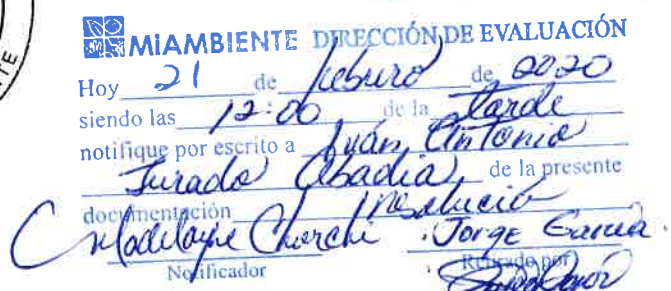 MIAMBIENTE DIRECCIÓN DE EVALUACIÓN
Hoy 21 de febrero de 2020
siendo las 12:00 de la tarde
notifique por escrito a Iván Antonio
Jurado Abadía de la presente
documentación resolución
Churchi Jorge Garcia.
Notificador Retirado por